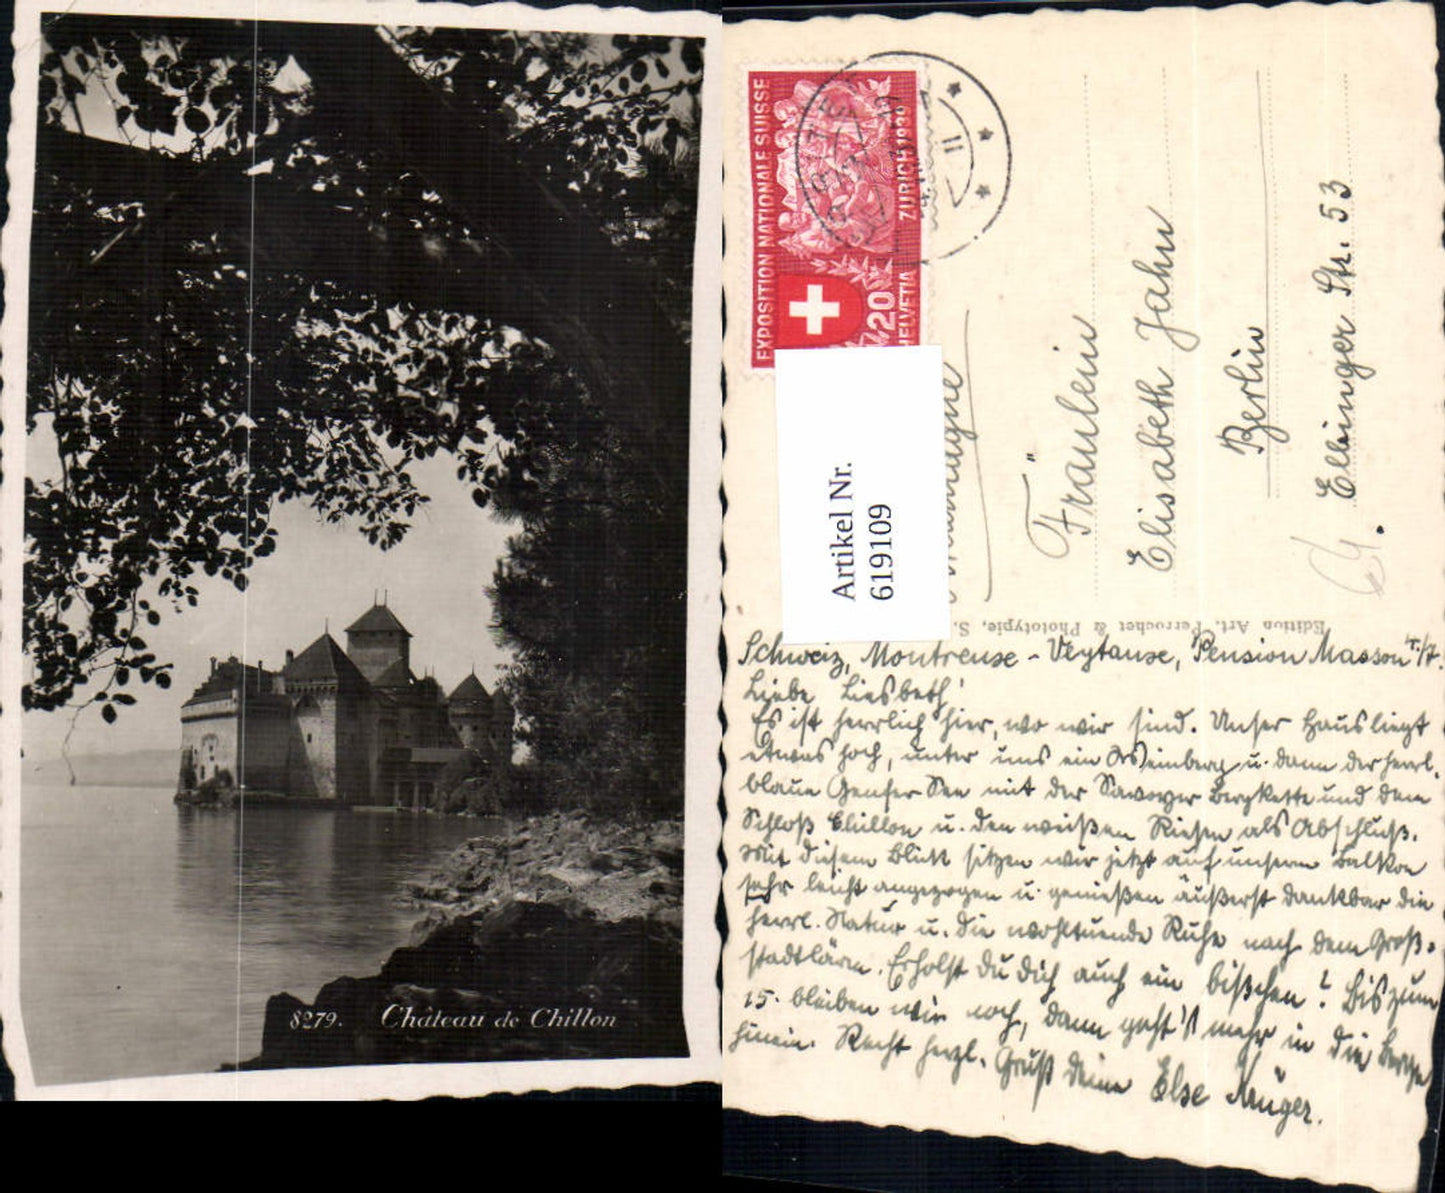 8279. Château de Chillon
EXPOSITION NATIONALE SUISSE
ZURICH 1939
20
HELVETIA
Artikel Nr.
619109
Fräulein
Elisabeth Jahn
Berlin
Elbinger Str. 53
Edition Art. Perrochet & Phototypie, S.
Schweiz, Montreuse-Veytause, Pension Masson 4./7.
Liebe Liesbeth!
Es ist herrlich hier, wo wir sind. Unser Haus liegt
etwas hoch, unter uns ein Weinberg u. dann der herrl.
blaue Genfer See mit der Savoyer Bergkette und dem
Schloß Chillon u. den weißen Riesen als Abschluß.
Mit diesem Blick sitzen wir jetzt auf unserm Balkon
sehr leicht angezogen u. genießen äußerst dankbar die
herrl. Natur u. die wohltuende Ruhe nach dem Groß-
stadtlärm. Erholst du dich auch ein bißchen? Bis zum
15. bleiben wir noch, dann geht's mehr in die Berge
hinein. Recht herzl. Gruß deine Else Krüger.